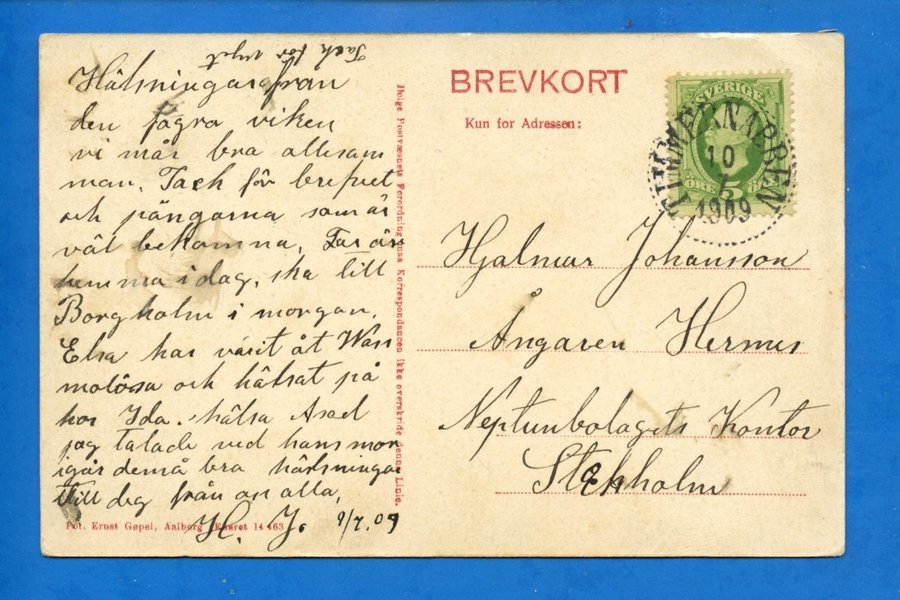 Tack för sist
Hälsningar från
den fagra viken
vi mår bra allesam
man. Tack för brefvet
och pängarna som är
väl bekomna. Far är
hemma i dag, ska till
Borgholm i morgon.
Elsa har varit åt Wan
molösa och hälsat på
hos Ida. hälsa Axel
jag talade ved hans mor
igår de må bra hälsningar
till dig från oss alla.
H. J. 9/7.09
Fot. Ernst Gøpel, Aalborg Eneret 14463
Ifølge Postvæsnets Forordning maa Korrespondancen ikke overskride denne Linie.
BREVKORT
Kun for Adressen:
SVERIGE
ÖRE 5 ÖRE
TIMMERNABBEN
10
7
1909
Hjalmar Johansson
Ångaren Hermes
Neptunbolagets Kontor
Stockholm